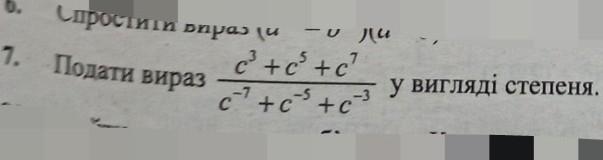 6. Спростити вираз
7. Подати вираз (c³ + c⁵ + c⁷)/(c⁻⁷ + c⁻⁵ + c⁻³) у вигляді степеня.